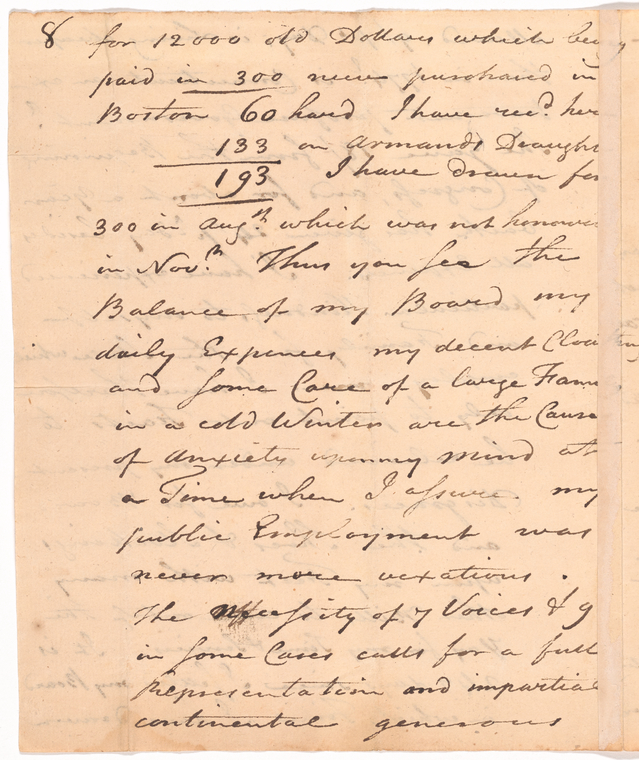 8 for 12000 old Dollars which
paid in 300 new purchased in
Boston 60 hard I have recd. her
133 on Armands Draught
193 I have drawn for
300 in Augst. which was not honou
in Novr. Thus you see the
Balance of my Board my
daily Expences my decent Cloa
and some Care of a large Fam
in a cold Winter are the Cause
of anxiety upon my mind at
a Time when I assure my
public Employment was
never more vexatious.
The necessity of 7 Voices & 9
in some Cases calls for a full
Representation and impartial
continental generous